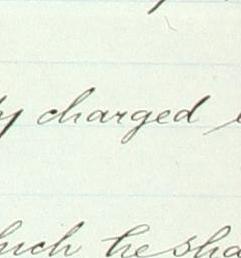 y charged
hich he sha